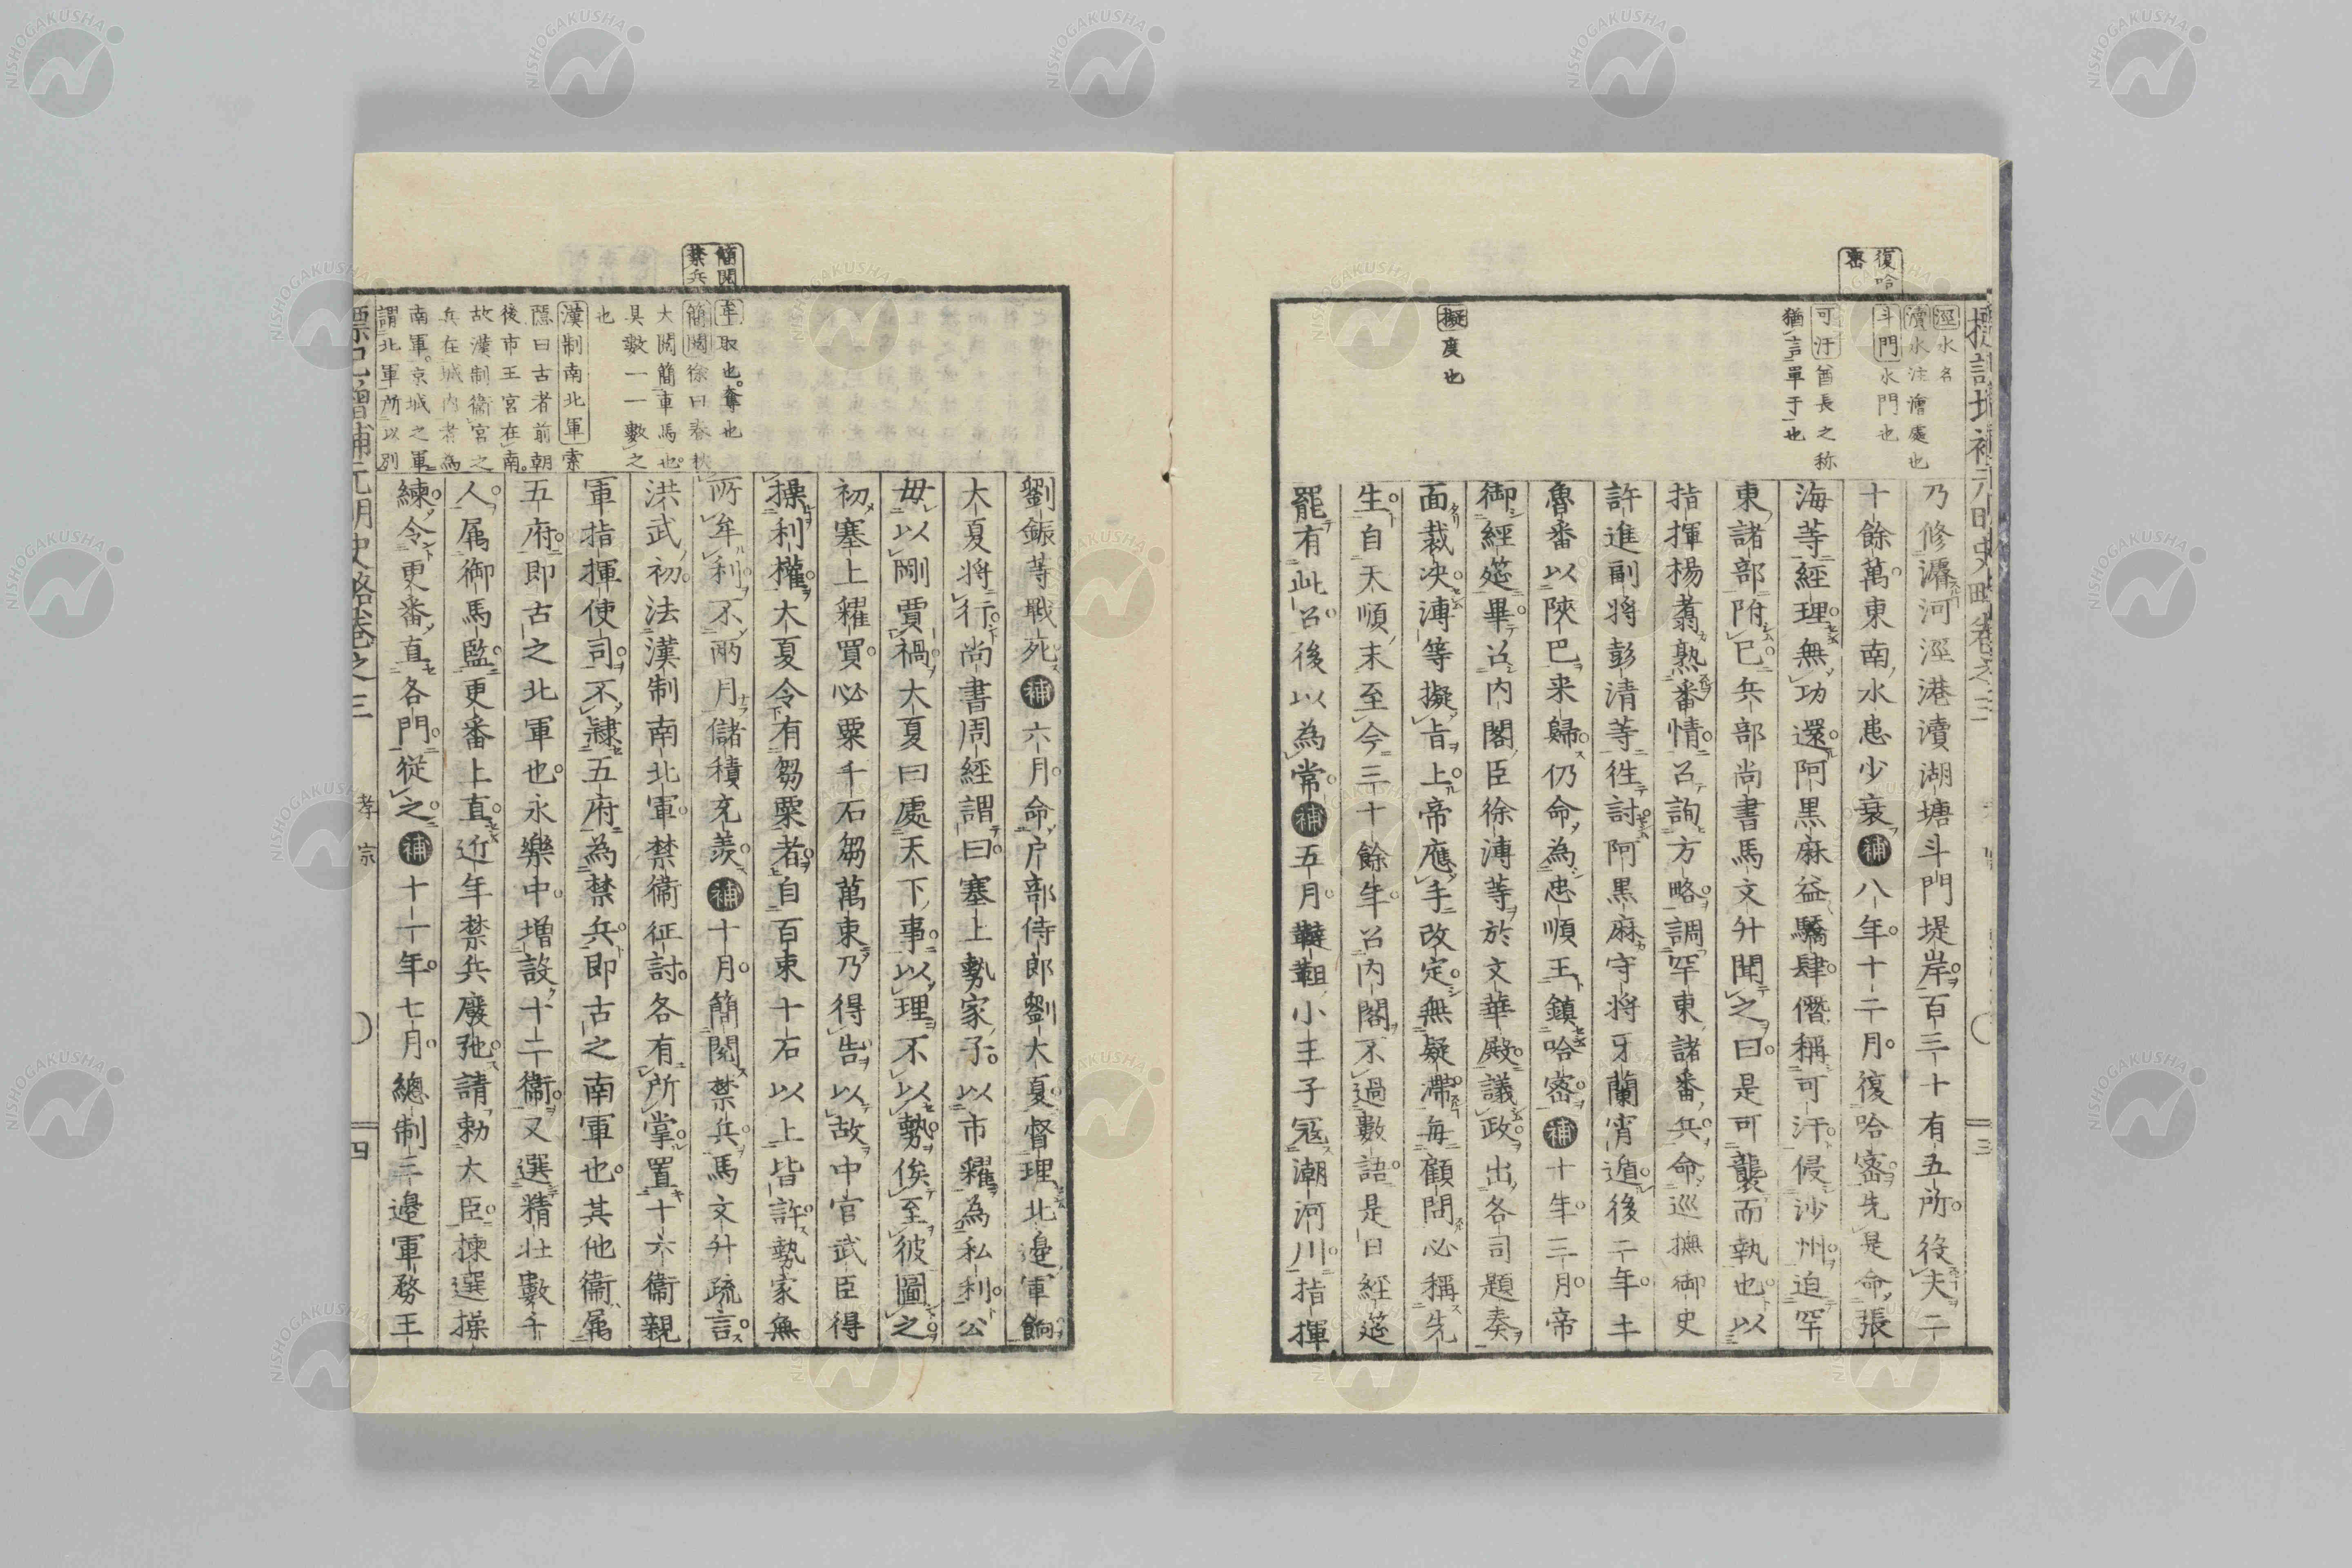 復哈
密
涇水名
瀆水注澮處也
斗門水門也
可汗酋長之称
猶言單于也
擬度也
乃修潺河涇港瀆湖塘斗門堤岸百三十有五所役夫二
十餘萬東南水患少衰補八年十二月復哈密先是命張
海等經理無功還阿黒麻益驕肆僭稱可汗侵沙州迫罕
東諸部附已兵部尚書馬文升聞之曰是可襲而執也以
指揮楊翥熟番情召詢方略調罕東諸番兵命巡撫御史
許進副將彭清等徃討阿黒麻守將牙蘭宵遁後二年土
魯番以陝巴来歸仍命為忠順王鎮哈密補十年三月帝
御經筵畢召内閣臣徐溥等於文華殿議政出各司題奏
面裁决溥等擬旨上帝應手改定無疑滯毎顧問必稱先
生自天順末至今三十餘年召内閣不過數語是日經筵
罷有此召後以為常補五月韃靼小王子冦潮河川指揮
三
簡閲
禁兵
牟取也奪也
簡閲徐曰春秋
大閲簡車馬也
具數一一數之
也
漢制南北軍索
隠曰古者前朝
後市王宮在南
故漢制衞宮之
兵在城内者為
南軍京城之軍
謂北軍所以別
劉鋠等戰死補六月命户部侍郎劉大夏督理北邉軍餉
大夏将行尚書周經謂曰塞上勢家子以市糴為私利公
毋以剛賈禍大夏曰處天下事以理不以勢俟至彼圖之
初塞上糴買必粟千石芻萬束乃得告以故中官武臣得
操利權大夏令有芻粟者自百束十石以上皆許勢家無
所牟利不兩月儲積充羨補十月簡閲禁兵馬文升疏言
洪武初法漢制南北軍禁衞征討各有所掌置十六衞親
軍指揮使司不隷五府為禁兵即古之南軍也其他衞属
五府即古之北軍也永樂中増設十二衞又選精壮數千
人属御馬監更番上直近年禁兵廢弛請勅大臣揀選操
練令更番直各門從之補十一年七月總制三邉軍務王
標記增補元明史略卷之三
孝宗
四